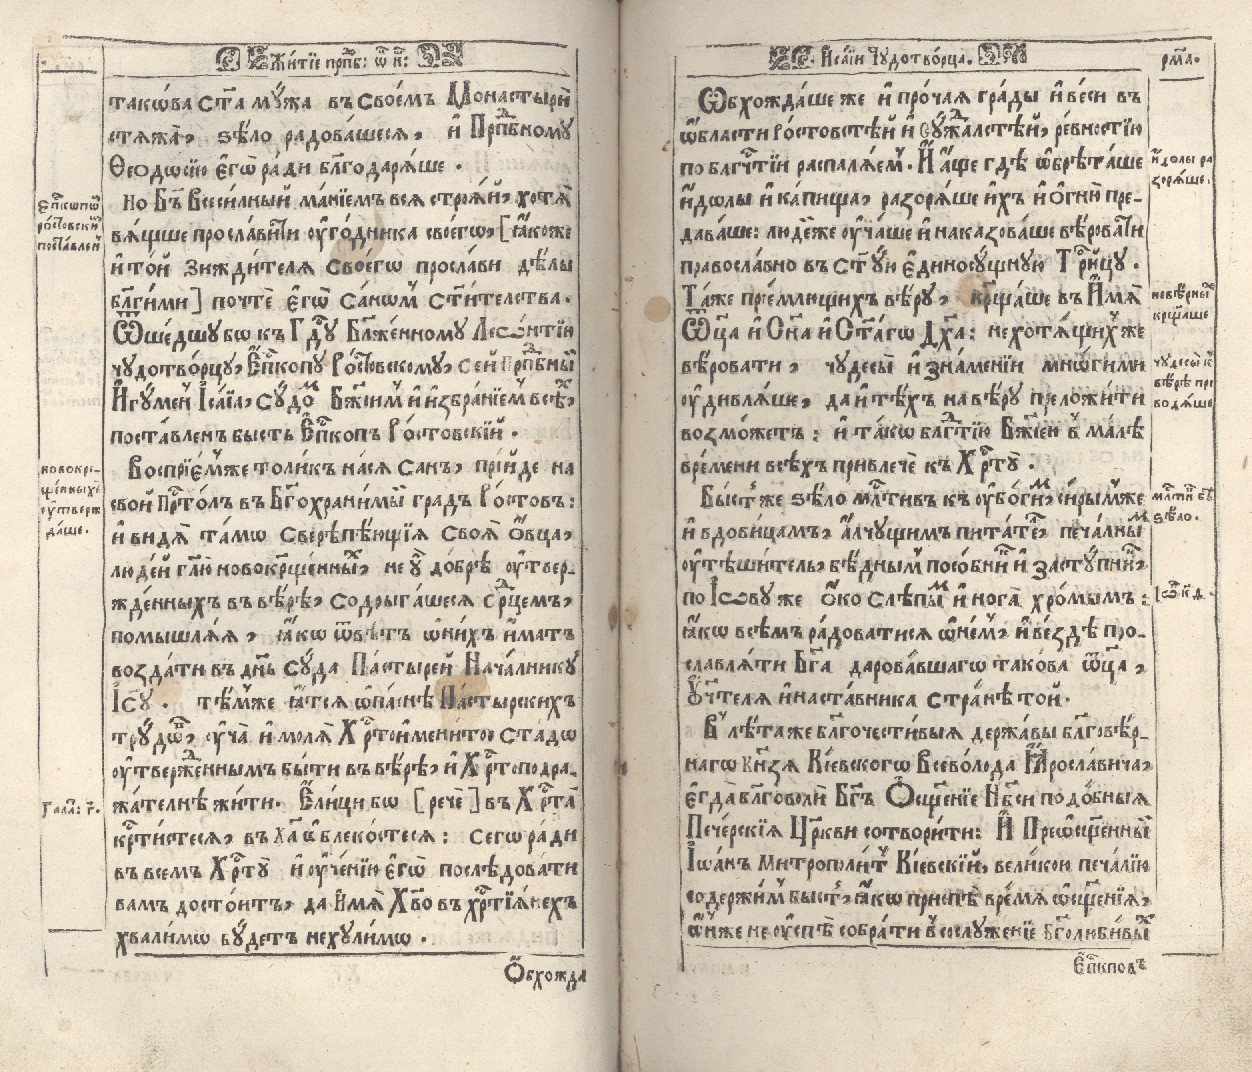 Житїе прпⷣб: ѿ н҃:
такова ст҃а мꙋ́жа въ своє́мъ Монастырѝ
стѧжа̀, ѕѣ́ло радова́шесѧ, и҆ Прпⷣбному
Ѳеодѡсїю є҆гѡ̀ ра́ди бл҃годарѧ́ше .
Но Бг҃ъ Всеси́лный ма́нїемъ всѧ строѧ́й, хотѧ̀
вѧщше прославити оу҆го́дника своего̀, [ ꙗ҆́коже
и҆ то́й Зижди́телѧ своего̀ просла́ви дѣ́лы
бл҃ги́ми ] почтѐ є҆гѡ̀ Са́номъ Ст҃и́телства .
Ѿше́дшꙋ бо къ Гдⷭ҇ꙋ Бл҃же́нномꙋ Лео́нтїю
чꙋдотво́рцꙋ, Є҆пⷭ҇копꙋ Росто́вскомꙋ, се́й Прпⷣбный
И҆гꙋ́менъ І҆са́їа, сꙋдо́мъ Бж҃їимъ и҆ и҆збра́нїемъ всѣ́хъ,
поста́вленъ бысть Є҆пⷭ҇копъ Росто́вскїй .
Воспрїе́мже толи́къ на сѧ̀ Са́нъ, прїи́де на
свой Прⷭ҇то́лъ въ Бг҃охрани́мый гра́дъ Росто́въ :
и҆ ви́дѧ та́мѡ свѣрѣпѣ́ющїѧ своѧ̀ Ѻ҆́вца,
люде́й гл҃ю новокрщ҃е́нныхъ, не ᲂу҆̀ до́брѣ оу҆твер-
жде́нныхъ въ вѣ́рѣ, содрыга́шесѧ срⷣцемъ,
помышлѧ́ѧ, ꙗ҆́кѡ ѿвѣ́тъ ѡ҆ ни́хъ и҆́мать
возда́ти въ дн҃ь сꙋда̀ Па́стырей Нача́лникꙋ
І҆с҃ꙋ . тѣ́мже ꙗ҆́тсѧ ѡ҆па́снѣ Па́стырскихъ
трꙋдѡ́въ, оу҆ча̀ и҆ молѧ̀ Хрⷭ҇тоимени́тое ста́до
оу҆твержде́ннымъ бы́ти въ вѣ́рѣ, и҆ Хрⷭ҇топодра-
жа́телнѣ жи́ти . Є҆ли́цы бо [ рече́ ] въ Хрⷭ҇та̀
крⷭ҇ти́стесѧ, въ Хрⷭ҇та̀ ѡ҆блеко́стесѧ : сегѡ̀ ра́ди
въ всемъ Хрⷭ҇тꙋ̀ и҆ оу҆че́нїю є҆гѡ̀ послѣ́довати
вамъ досто́итъ, да и҆́мѧ Хв҃о въ хрⷭ҇тїѧнехъ
хвали́мо бꙋ́детъ не хꙋли́мо .
Ѻ҆бхожда
Єпⷭ҇копѡ
росто́вскимъ
поста́вленъ
новокре-
щенныхъ
оу҆твержд-
да́ше.
Гала: г҃.
И҆са́їи Чꙋдотво́рца.
рм҃а.
Ѡ҆бхожда́ше же и҆ про́чаѧ гра́ды и҆ ве́си въ
ѡ҆́бласти Росто́встѣй и҆ Сꙋ́ждалстѣй, ре́вностїю
по благⷭ҇тїи распалѧ́емъ. И҆ а҆́ще гдѣ̀ ѡ҆брѣта́ше
и҆́дѡлы и҆ ка́пища, разорѧ́ше и҆́хъ и҆ ѻ҆гнѝ пре-
дава́ше: люде́же оу҆ча́ше и҆ наказова́ше вѣ́ровати
правосла́вно въ ст҃ꙋ́ю є҆диносꙋ́щнꙋю Трⷪ҇ицꙋ .
Та́же прїе́млющихъ вѣ́рꙋ, крⷭ҇ща́ше въ И҆́мѧ
Ѻ҆ц҃а и҆ Сн҃а и҆ Ст҃а́гѡ Дх҃а: не хотѧ́щихъ же
вѣ́ровати, чꙋдесы̀ и҆ зна́менїи мно́гими
оу҆дивлѧ́ше, да и҆ тѣ́хъ на вѣ́рꙋ преложи́ти
возмо́жетъ : и҆ та́кѡ благⷣтїю Бж҃їею въ ма́лѣ
вре́мени всѣ́хъ привлечѐ къ Хрⷭ҇тꙋ̀ .
Бы́сть же ѕѣ́ло млⷭ҇тивъ къ оу҆бо́гимъ, си́рымже
и҆ вдови́цамъ, а҆́лчꙋщимъ пита́тель, печа́лнымъ
оу҆тѣ́шитель, бѣ́днымъ посо́бникъ и҆ застꙋ́пникъ,
по І҆́ѡвꙋ же ѻ҆́ко слѣпы́мъ и҆ нога̀ хро́мымъ :
ꙗ҆́кѡ всѣ́мъ ра́доватисѧ ѡ҆ не́мъ, и҆ ве́здѣ про-
славлѧ́ти Бг҃а дарова́вшагѡ тако́ва ѻ҆тц҃а,
оу҆чт҃елѧ и҆ наста́вника странѣ́ той .
В лѣ́та же бл҃гочести́выѧ держа́вы бл҃говѣ́р-
нагѡ Кн҃зѧ Кі́евскогѡ Все́волода Ꙗ҆росла́вича,
є҆гда̀ бл҃говолѝ Бг҃ъ Ѻ҆сщ҃е́нїе Нб҃си подо́бныѧ
Пече́рскїѧ Цр҃кви сотвори́ти: И҆ Преѡсщ҃е́нный
І҆ѡа́нъ Митрополи́тъ Кі́евскїй, вели́кою печа́лїю
содержи́мъ бы́сть, ꙗ҆́кѡ приспѣ̀ вре́мѧ ѡ҆сщ҃е́нїѧ,
ѻ҆́нже не оу҆спѣ̀ собра́ти въ сослꙋже́нїе Бг҃олюби́выхъ
Є҆пⷭ҇копѡвъ
и҆́долы ра
зорѧ́ше.
невѣ́рныѧ
крⷭ҇ща́ше
чꙋдесы̀ къ
вѣ́рѣ при
водѧ́ше
млⷭ҇тивъ бѣ̀
ѕѣ́ло.
І҆ѡ́в: к҃д.